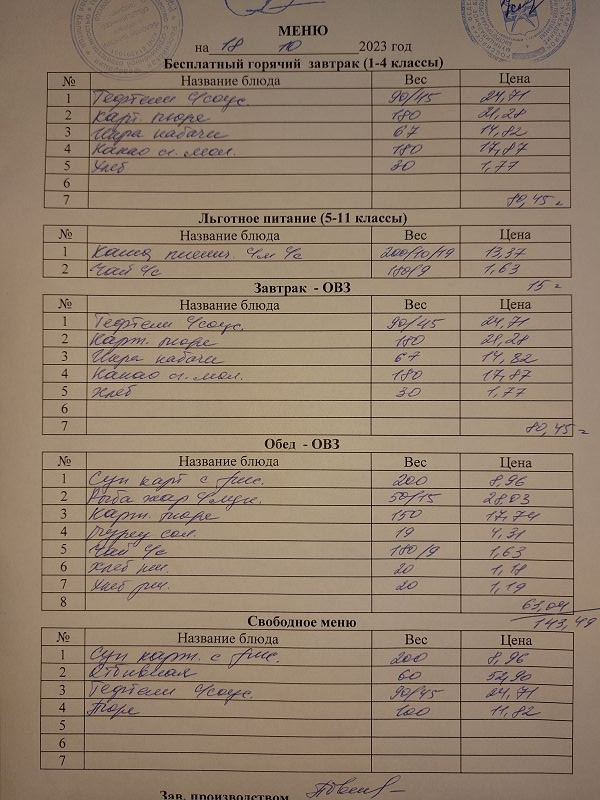 МЕНЮ
на 18 10 2023 год
Бесплатный горячий завтрак (1-4 классы)
№ Название блюда Вес Цена
1 Тефтели с/соус. 90/45 24,71
2 Карт. пюре 180 21,28
3 Икра кабачк 67 14,82
4 Какао сг. мол. 180 17,87
5 Хлеб 30 1,77
6
7 80,45
Льготное питание (5-11 классы)
№ Название блюда Вес Цена
1 Каша пшенич. с/м с/с 200/10/19 13,37
2 Чай с/с 180/9 1,63
15
Завтрак - ОВЗ
№ Название блюда Вес Цена
1 Тефтели с/соус. 90/45 24,71
2 Карт. пюре 180 21,28
3 Икра кабачк 67 14,82
4 Какао сг. мол. 180 17,87
5 Хлеб 30 1,77
6
7 80,45
Обед - ОВЗ
№ Название блюда Вес Цена
1 Суп карт с рис. 200 8,96
2 Рыба жар 50/15 28,03
3 Карт. пюре 150 17,74
4 Огурец сол. 19 4,31
5 Чай с/с 180/9 1,63
6 Хлеб пш. 20 1,18
7 Хлеб рж. 20 1,19
8 63,04
143,49
Свободное меню
№ Название блюда Вес Цена
1 Суп карт. с рис. 200 8,96
2 Отбивная 60 52,90
3 Тефтели с/соус. 90/45 24,71
4 Пюре 100 11,82
5
6
7
Зав. производством